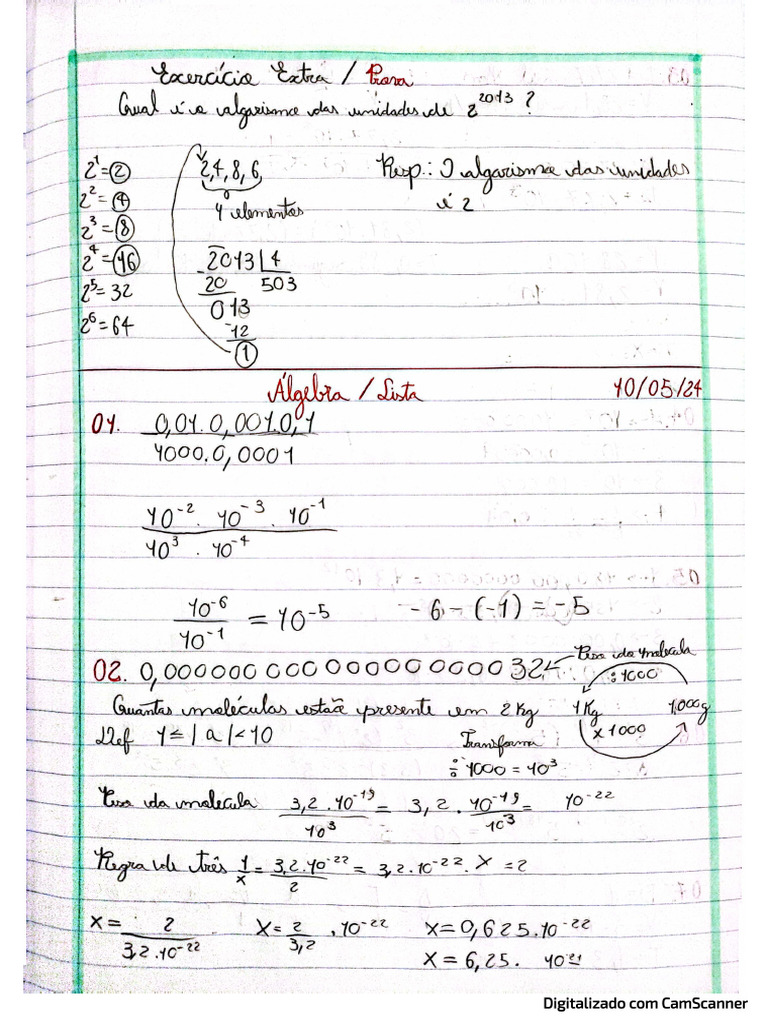 Exercício Extra / Prova
Qual é o algarismo das unidades de 2^2013 ?
2^1 = 2
2^2 = 4
2^3 = 8
2^4 = 16
2^5 = 32
2^6 = 64
2, 4, 8, 6,
4 elementos
2013 | 4
-20 503
013
-12
1
Resp.: O algarismo das unidades
é 2
Álgebra / Lista 10/05/24
01. 0,01.0,001.0,1
1000.0,0001
10^-2 . 10^-3 . 10^-1
10^3 . 10^-4
10^-6 / 10^-1 = 10^-5 -6-(-1) = -5
02. 0,00000000000000000032 Peso da molecula
Quantas moléculas estão presente em 2Kg
÷1000
1Kg 1,000g
x1000
1 ≤ | a | < 10
Transforma
÷ 1000 = 10^3
Peso da molecula 3,2 . 10^-19 / 10^3 = 3,2 . 10^-19 / 10^3 = 10^-22
Regra de três 1/x = 3,2.10^-22 / 2 = 3,2.10^-22 . x = 2
x = 2 / 3,2.10^-22 x = 2 / 3,2 . 10^-22 x = 0,625.10^-22
x = 6,25. 10^21
Digitalizado com CamScanner